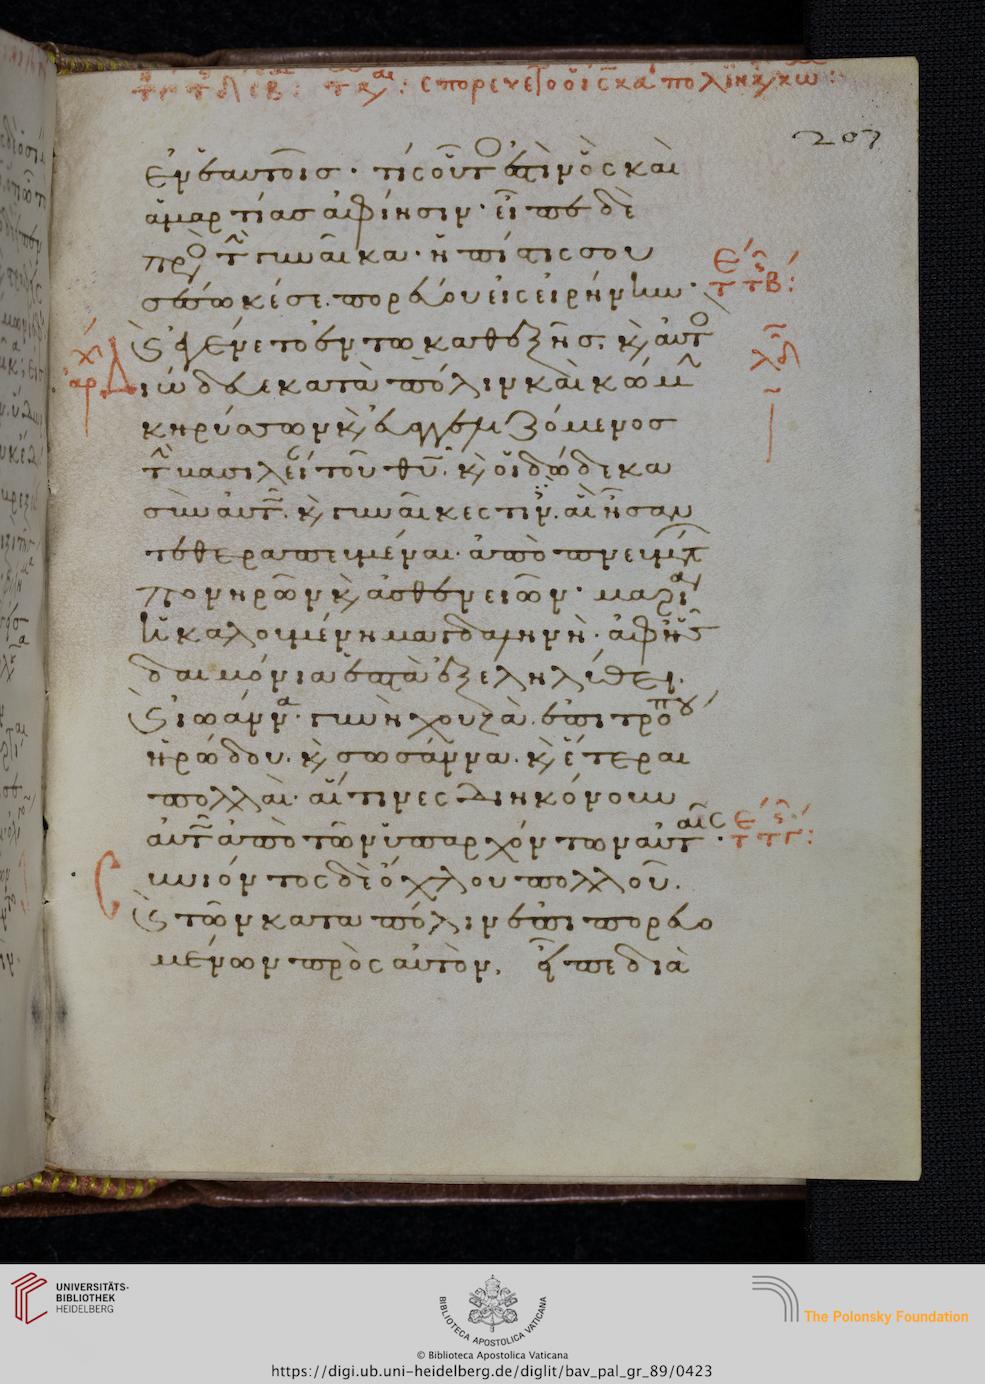 ἐπορεύετο ὁ ἰς κα πόλιν κ κω :
207
ἐν ἑαυτοῖς · τίς οὗτος ἐστὶν ὃς καὶ
ἁμαρτίας ἀφίησιν · εἶπε δὲ
πρὸ τ γυναῖκα · ἡ πίστις σου
σέσωκέ σε · πορεύου εἰς εἰρήνην ·
ἐγένετο ἐν τῶ καθεξῆς · κ αὐτὸ
διώδευε κατὰ πόλιν καὶ κώμ
κηρύσσων κ εὐαγγελιζόμενος
τ βασιλεί τοῦ θυ · κ οἱ δώδεκα
σὺν αὐτ · κ γυναῖκες τιν · αἳ ἦσαν
τεθεραπευμέναι · ἀπὸ πνευμτ
πονηρῶν κ ἀσθενειῶν · μαρία
ἡ καλουμένη μαγδαληνὴ · ἀφ ἧς
δαιμόνια ἑπτὰ ἐξεληλύθει ·
κ ἰωάννα · γυνὴ χουζὰ · ἐπιτρόπου
ἡρώδου · κ σωσάννα · κ ἕτεραι
πολλαὶ · αἵτινες διηκόνουν
αὐτῶ ἀπὸ τῶν ὑπαρχόντων αὐταῖς ·
συνιόντος δὲ ὄχλου πολλοῦ ·
κ τῶν κατα πόλιν ἐπιπορευο
μένων πρὸς αὐτὸν · εἶπε διὰ
UNIVERSITÄTS-
BIBLIOTHEK
HEIDELBERG
BIBLIOTECA APOSTOLICA VATICANA
The Polonsky Foundation
© Biblioteca Apostolica Vaticana
https://digi.ub.uni-heidelberg.de/diglit/bav_pal_gr_89/0423